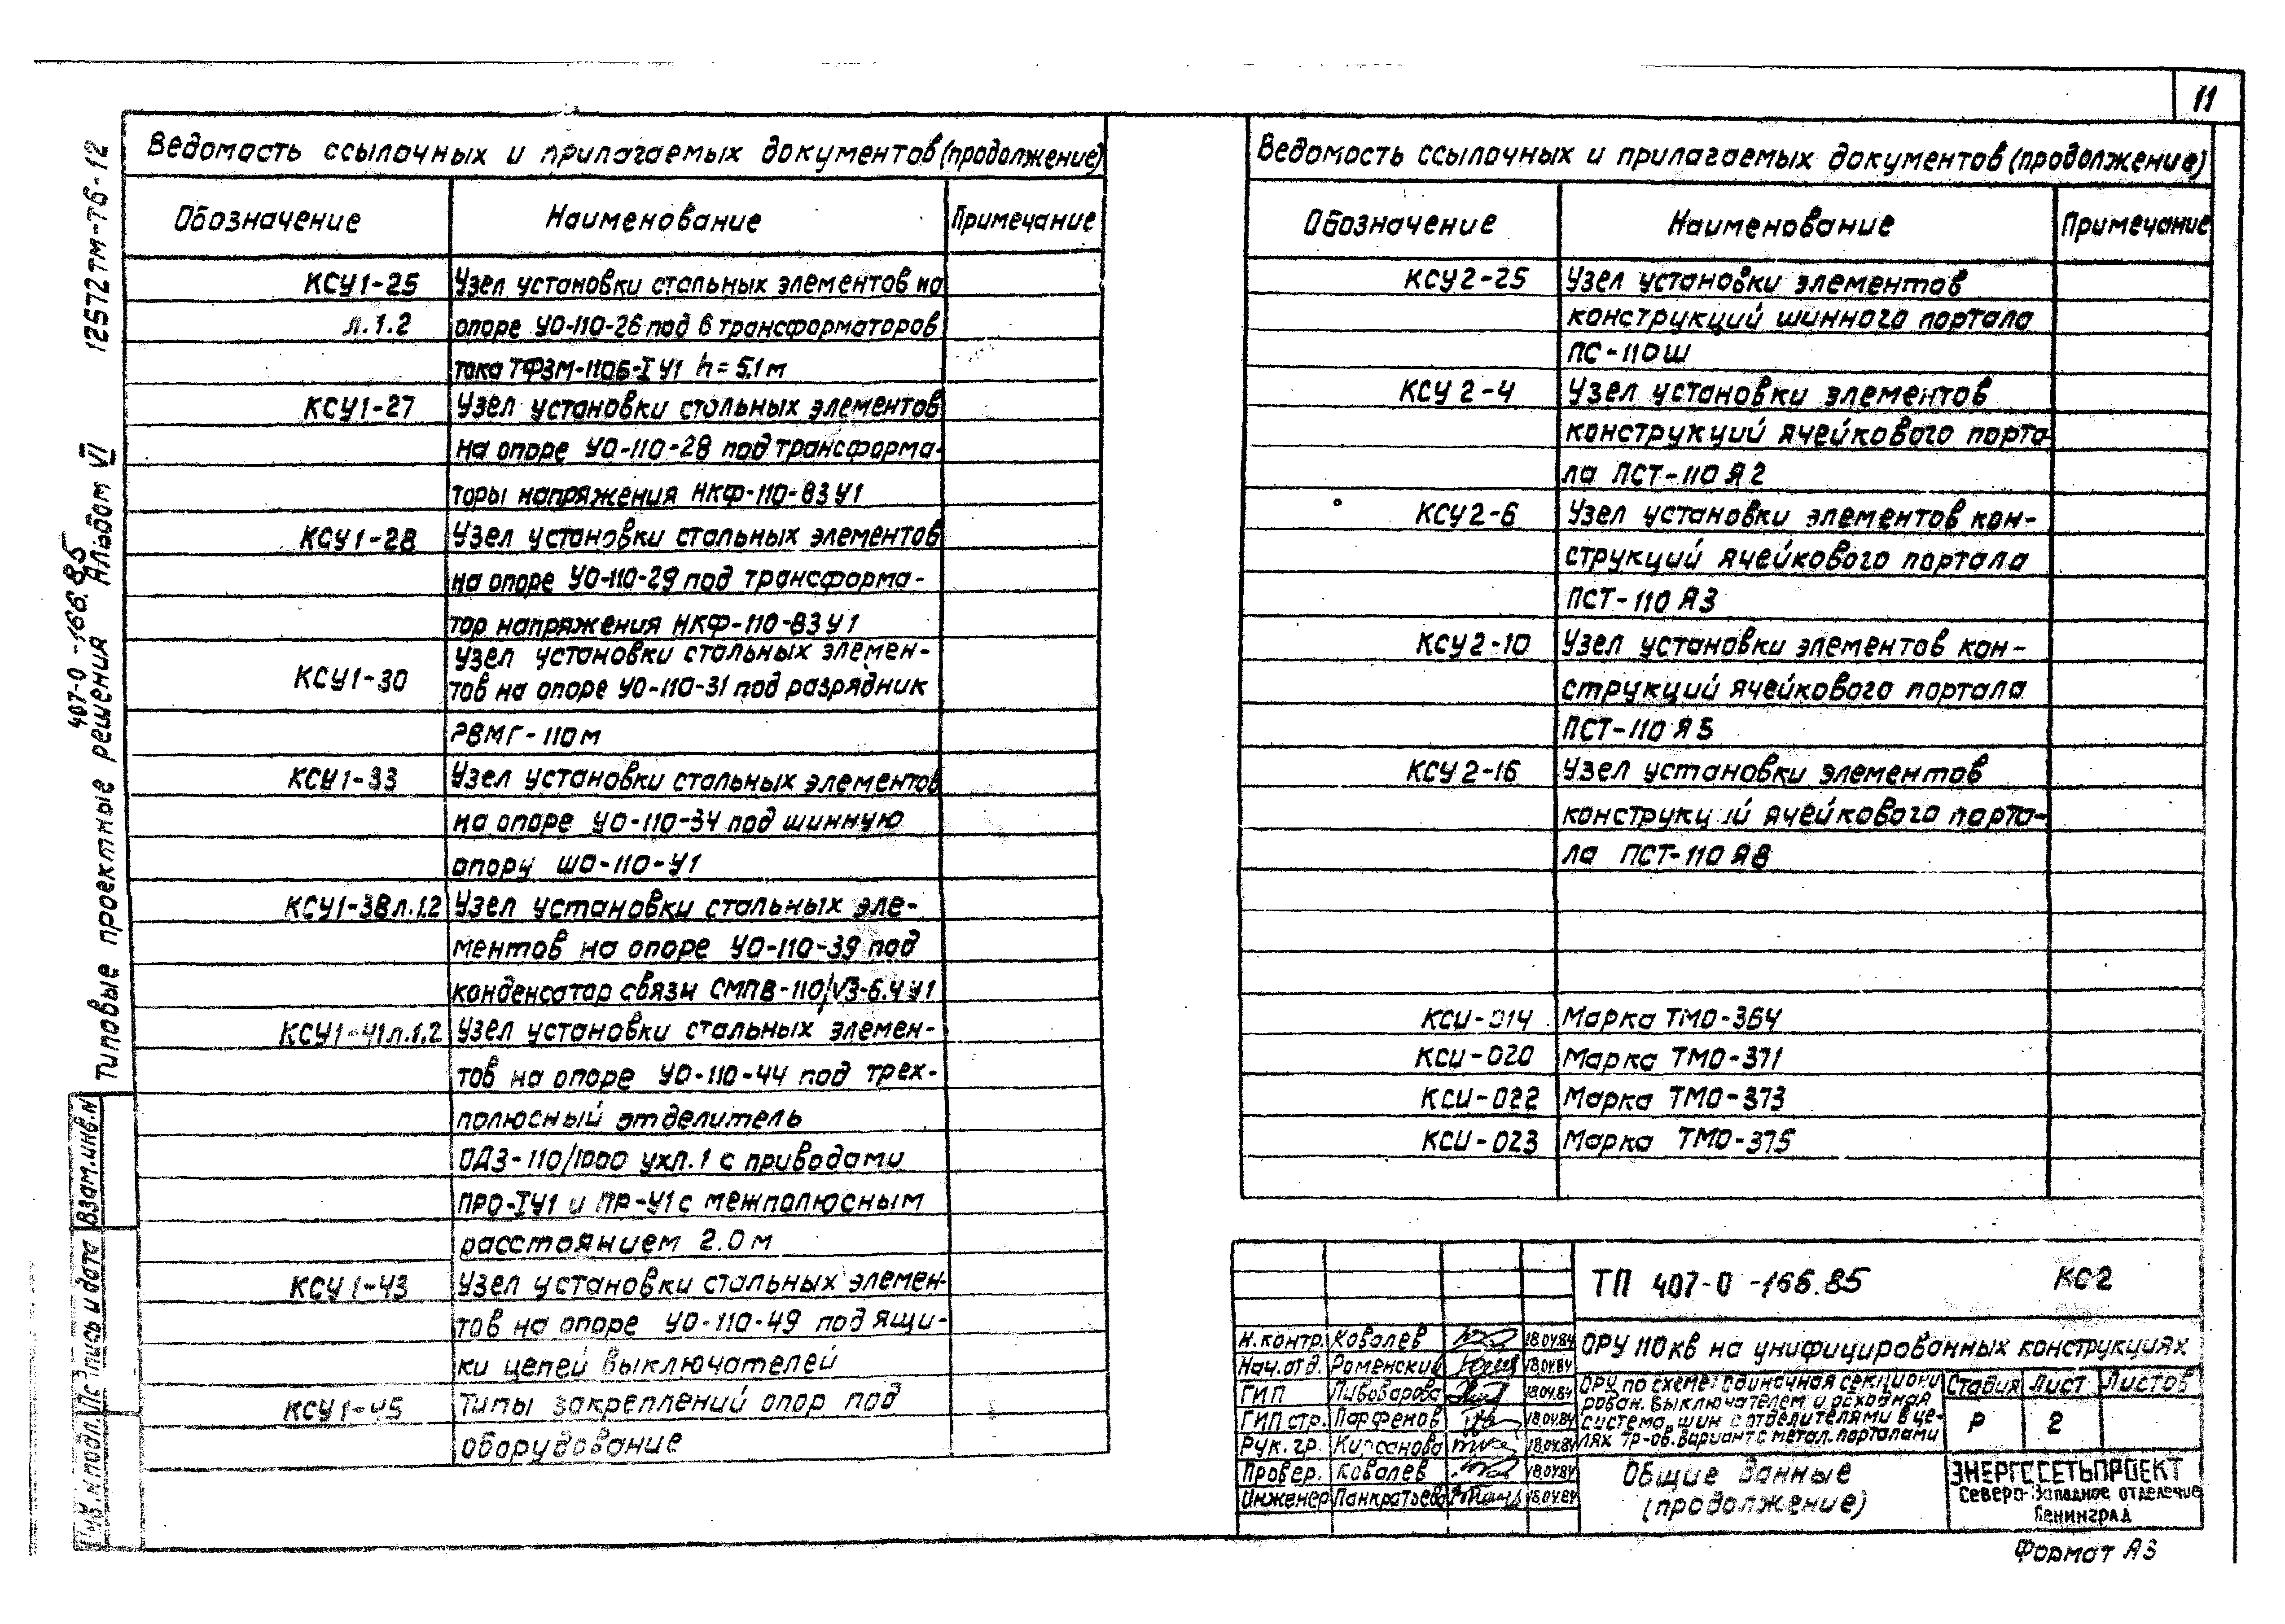 11
12572тм-т6-12
407-0-166.85
Типовые проектные решения Альбом VI
Взам.инв.N
Ведомость ссылочных и прилагаемых документов (продолжение)
Обозначение Наименование Примечание
КСУ1-25 Узел установки стальных элементов на
л.1.2 опоре УО-110-26 под 6 трансформаторов
тока ТФЗМ-110Б-I У1 h=5.1м
КСУ1-27 Узел установки стальных элементов
на опоре УО-110-28 под трансформа-
торы напряжения НКФ-110-83У1
КСУ1-28 Узел установки стальных элементов
на опоре УО-110-29 под трансформа-
тор напряжения НКФ-110-83У1
Узел установки стальных элемен-
КСУ1-30 тов на опоре УО-110-31 под разрядник
РВМГ-110м
КСУ1-33 Узел установки стальных элементов
на опоре УО-110-34 под шинную
опору ШО-110-У1
КСУ1-38л.1.2 Узел установки стальных эле-
ментов на опоре УО-110-39 под
конденсатор связи СМПВ-110/√3-6.4У1
КСУ1-41л.1.2 Узел установки стальных элемен-
тов на опоре УО-110-44 под трех-
полюсный отделитель
ОДЗ-110/1000 ухл.1 с приводами
ПРО-IУ1 и ПР-У1 с межполюсным
расстоянием 2.0м
КСУ1-43 Узел установки стальных элемен-
тов на опоре УО-110-49 под ящи-
ки цепей выключателей
КСУ1-45 Типы закреплений опор под
оборудование
Ведомость ссылочных и прилагаемых документов (продолжение)
Обозначение Наименование Примечание
КСУ2-25 Узел установки элементов
конструкций шинного портала
ПС-110Ш
КСУ2-4 Узел установки элементов
конструкций ячейкового порта-
ла ПСТ-110Я2
КСУ2-6 Узел установки элементов кон-
струкций ячейкового портала
ПСТ-110Я3
КСУ2-10 Узел установки элементов кон-
струкций ячейкового портала
ПСТ-110Я5
КСУ2-16 Узел установки элементов
конструкций ячейкового порта-
ла ПСТ-110Я8
КСИ-014 Марка ТМО-364
КСИ-020 Марка ТМО-371
КСИ-022 Марка ТМО-373
КСИ-023 Марка ТМО-375
ТП 407-0-166.85 КС2
Н.контр. Ковалев 18.04.84
Нач.отд. Роменский 18.04.84
ГИП Пивоварова 18.04.84
ГИП стр. Парфенов 18.04.84
Рук.гр. Кирсанова 18.04.84
Провер. Ковалев 18.04.84
Инженер Панкратьева 18.04.84
ОРУ 110кв на унифицированных конструкциях
ОРУ по схеме: одиночная секциони
рован. выключателем и обходная
система шин с отделителями в це-
пях тр-ов. Вариант с метал. порталами
Стадия Лист Листов
Р 2
Общие данные
(продолжение)
ЭНЕРГОСЕТЬПРОЕКТ
Северо-Западное отделение
Ленинград
Формат А3